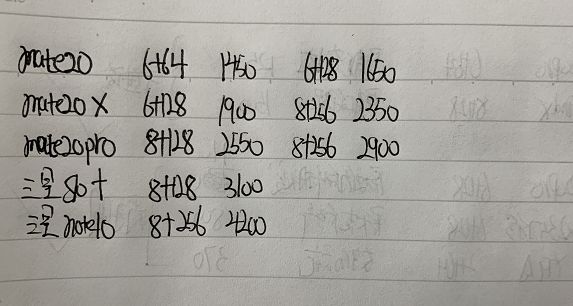 mate20 6+64 1450 6+128 1650
mate20 X 6+128 1900 8+256 2350
mate20pro 8+128 2550 8+256 2900
三星S10+ 8+128 3100
三星note10 8+256 4200